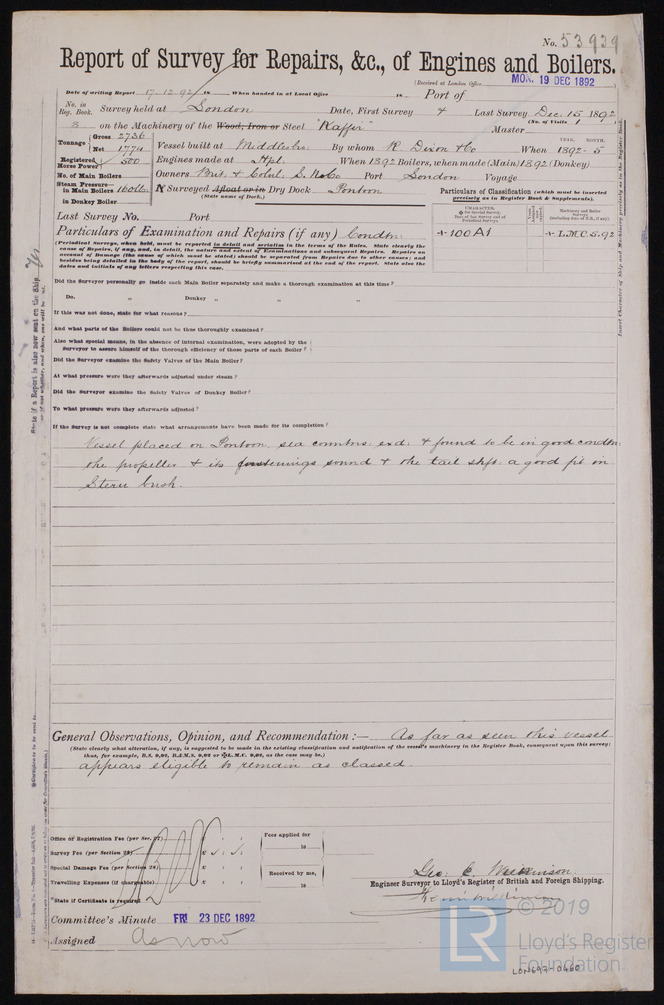 No. 53939
Report of Survey for Repairs, &c., of Engines and Boilers.
(Received at London Office MON. 19 DEC 1892
Date of writing Report 17-12-92 18 When handed in at Local Office 18 Port of
No. in Reg. Book. Survey held at London Date, First Survey & Last Survey Dec. 15 1892
(No. of Visits 1)
8 on the Machinery of the Wood, Iron or Steel "Kaffir" Master
Tonnage Gross 2736 Net 1774 Vessel built at Middlesbro: By whom R. Dixon & Co When YEAR. 1892 - MONTH. 5
Registered Horse Power 300 Engines made at Hpl. When 1892 Boilers, when made (Main) 1892 (Donkey)
No. of Main Boilers Owners Brit. & Colnl. S. N. Co Port London Voyage
Steam Pressure— in Main Boilers 160 lbs Surveyed Afloat or in Dry Dock Pontoon
in Donkey Boiler (State name of Dock.)
Particulars of Classification (which must be inserted precisely as in Register Book & Supplements).
Last Survey No. Port
+100A1 +L.M.C. 5.92
Particulars of Examination and Repairs (if any) Condtn:
(Periodical Surveys, when held, must be reported in detail and seriatim in the terms of the Rules. State clearly the
cause of Repairs, if any, and, in detail, the nature and extent of Examinations and subsequent Repairs. Repairs on
account of Damage (the cause of which must be stated) should be separated from Repairs due to other causes; and
besides being detailed in the body of the report, should be briefly summarised at the end of the report. State also the
dates and initials of any letters respecting this case.)
Did the Surveyor personally go inside each Main Boiler separately and make a thorough examination at this time?
Do. „ Donkey „ „ „
If this was not done, state for what reasons?
And what parts of the Boilers could not be thus thoroughly examined?
Also what special means, in the absence of internal examination, were adopted by the
Surveyor to assure himself of the thorough efficiency of those parts of each Boiler?
Did the Surveyor examine the Safety Valves of the Main Boiler?
At what pressure were they afterwards adjusted under steam?
Did the Surveyor examine the Safety Valves of Donkey Boiler?
To what pressure were they afterwards adjusted?
If the Survey is not complete state what arrangements have been made for its completion?
Vessel placed on Pontoon sea conntns: exd: & found to be in good condtn:
the propeller & its fastenings sound & the tail shft: a good fit in
Stern bush.
General Observations, Opinion, and Recommendation:— As far as seen this vessel
(State clearly what alteration, if any, is suggested to be made in the existing classification and notification of the vessel's machinery in the Register Book, consequent upon this survey;
that, for example, B.S. 9,01, B.&M.S. 9,01 or L.M.C. 9,01, as the case may be.)
appears eligible to remain as classed.
Office or Registration Fee (per Sec. 27) Fees applied for
Survey Fee (per Section 28) 18
Special Damage Fee (per Section 28)
Travelling Expenses (if chargeable) Received by me,
*State if Certificate is required 18
Geo. C.
Engineer Surveyor to Lloyd's Register of British and Foreign Shipping.
Committee's Minute FRI 23 DEC 1892
Assigned As now
© 2019
LR Lloyd's Register
Foundation
LON697-0460